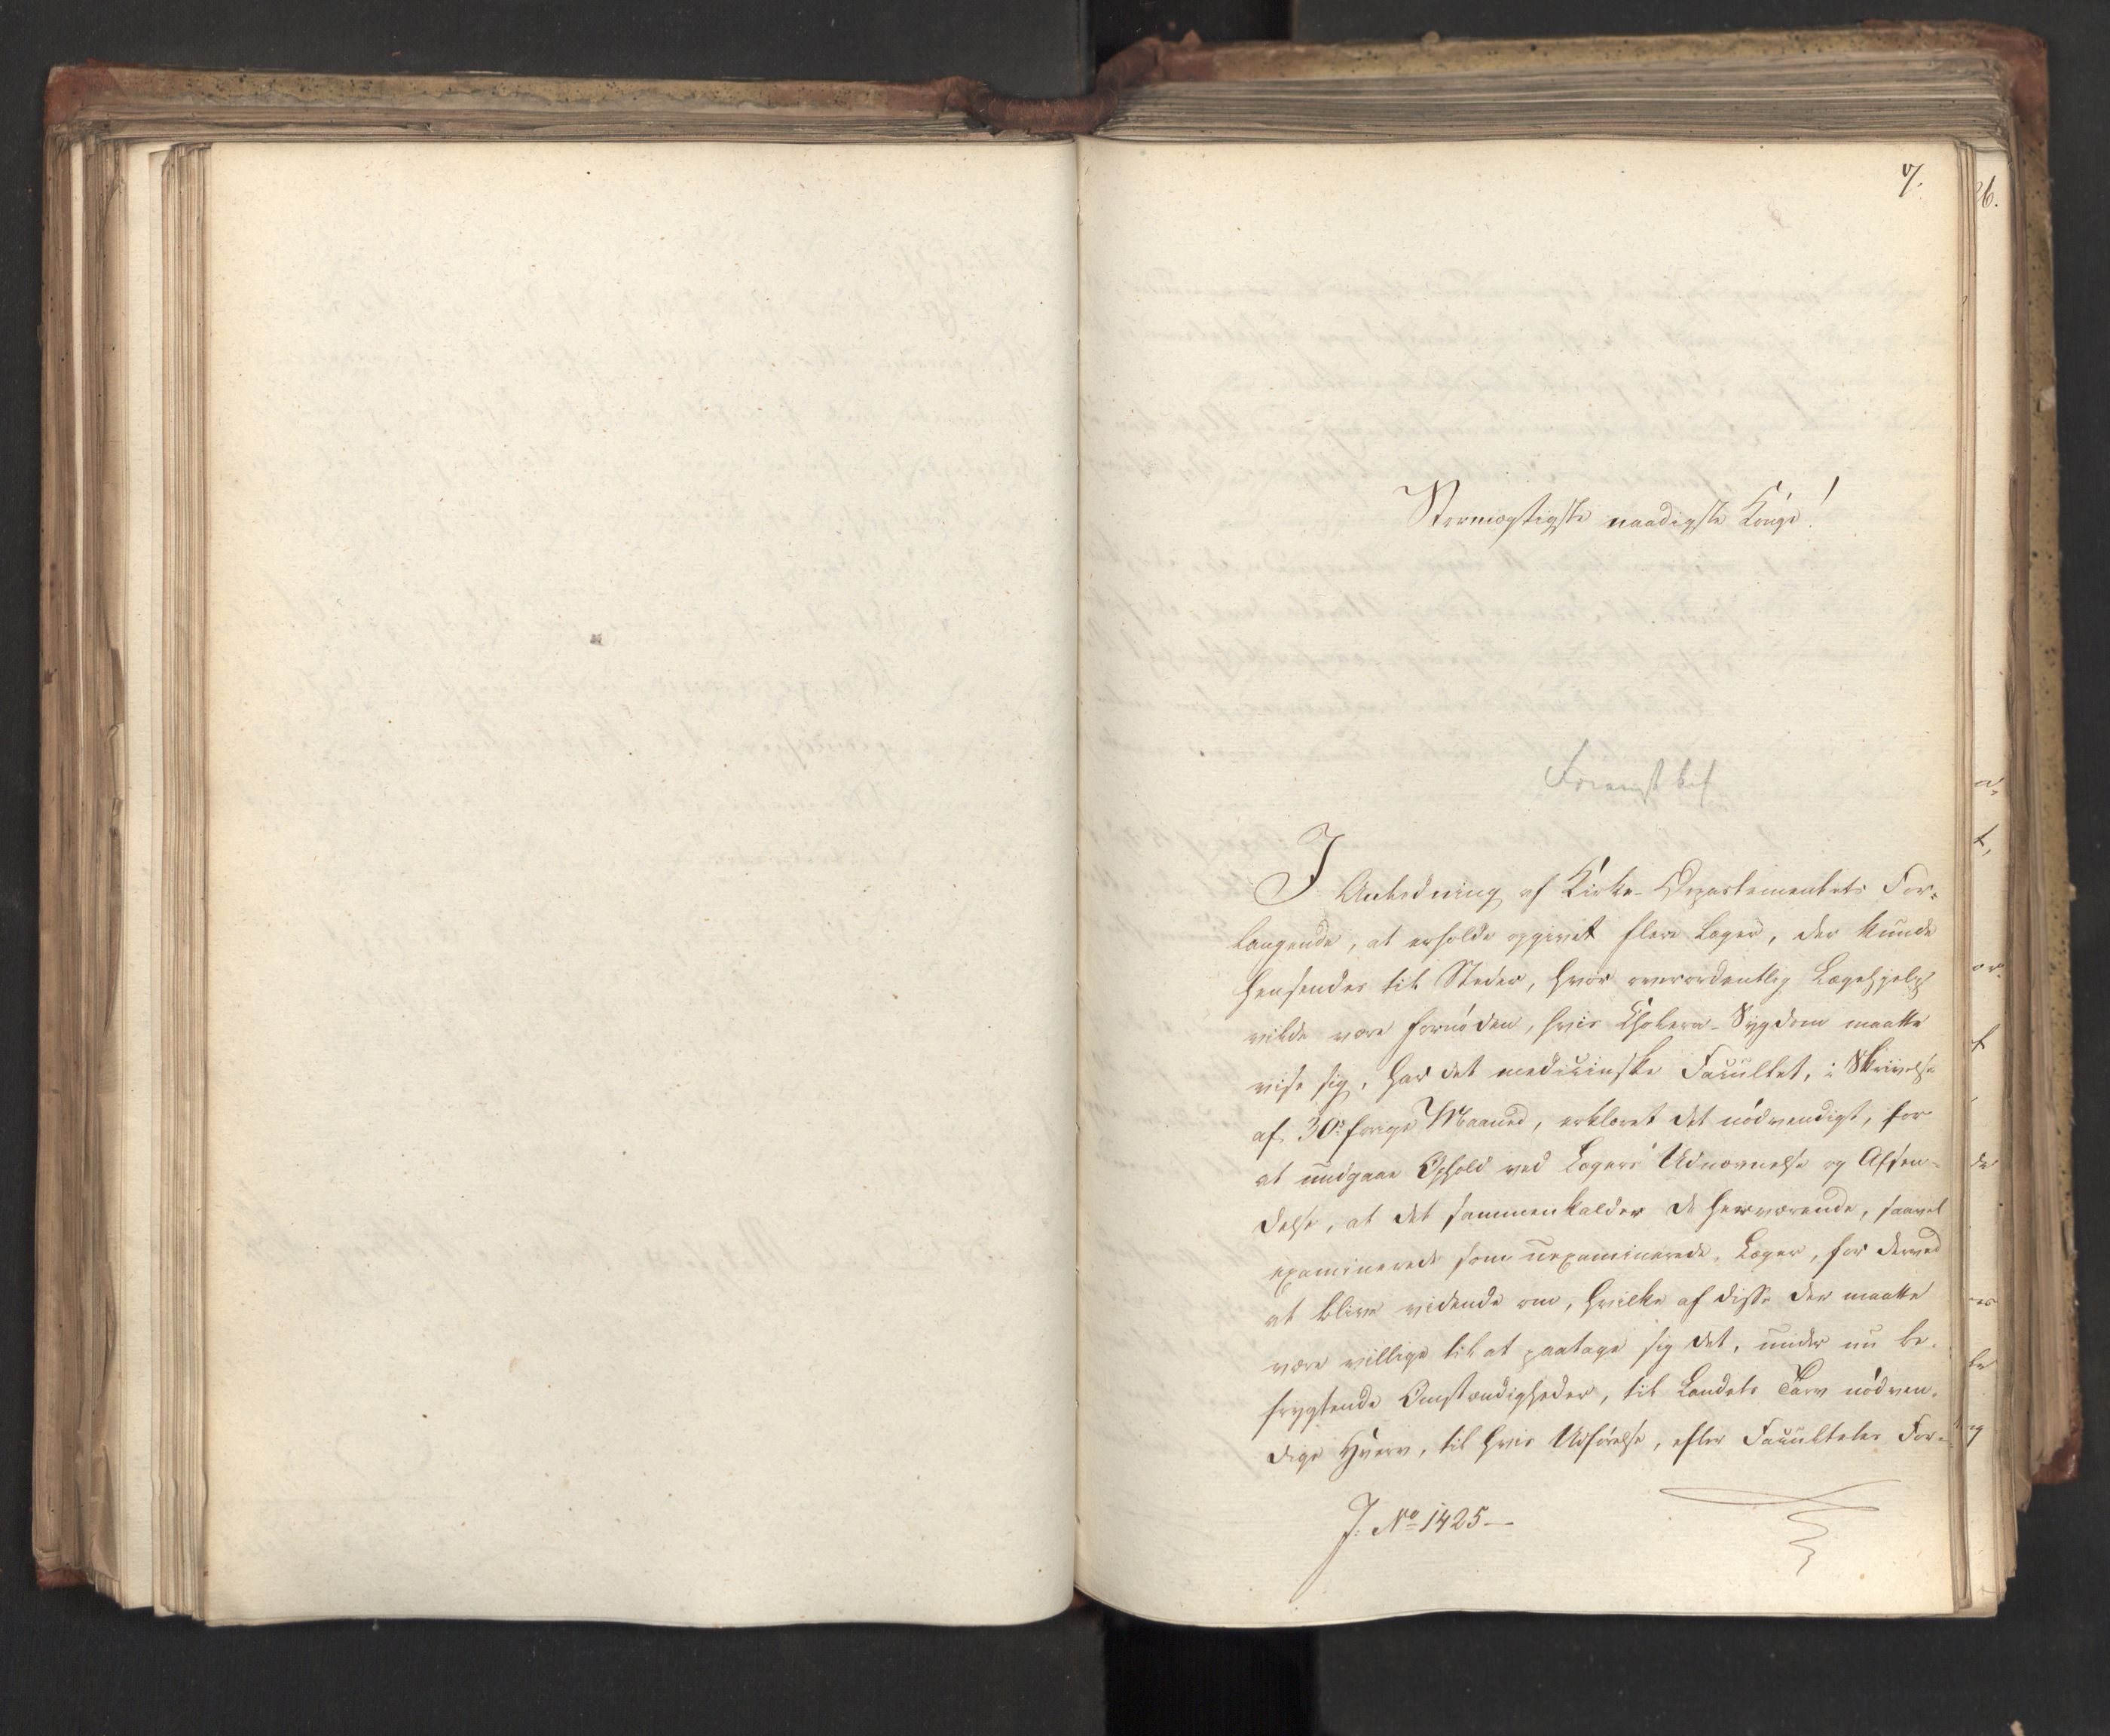 7.
26.
Stormægtigste naadigste Konge!
I Anledning af Kirke-Departementets For-
langende, at erholde opgivet flere Læger, der kunde
hensendes til Steder, hvor overordentlig Lægehjelp
vilde være fornøden, hvis Cholera-Sygdom maatte
vise sig, har det medicinske Facultet, i Skrivelse
af 30te forige Maaned, erklæret det nødvendigt, for
at undgaae Ophold ved Lægers Udnævnelse og Afsen-
delse, at det sammenkalder de herværende, saavel
examinerede som uexaminerede, Læger, for derved
at blive vidende om, hvilke af disse der maatte
være villige til at paatage sig det, under nu be-
frygtende Omstændigheder, til Landets Tarv nødven-
dige Hverv, til hvis Udførelse, efter Facultetets For-
J. No 1425-